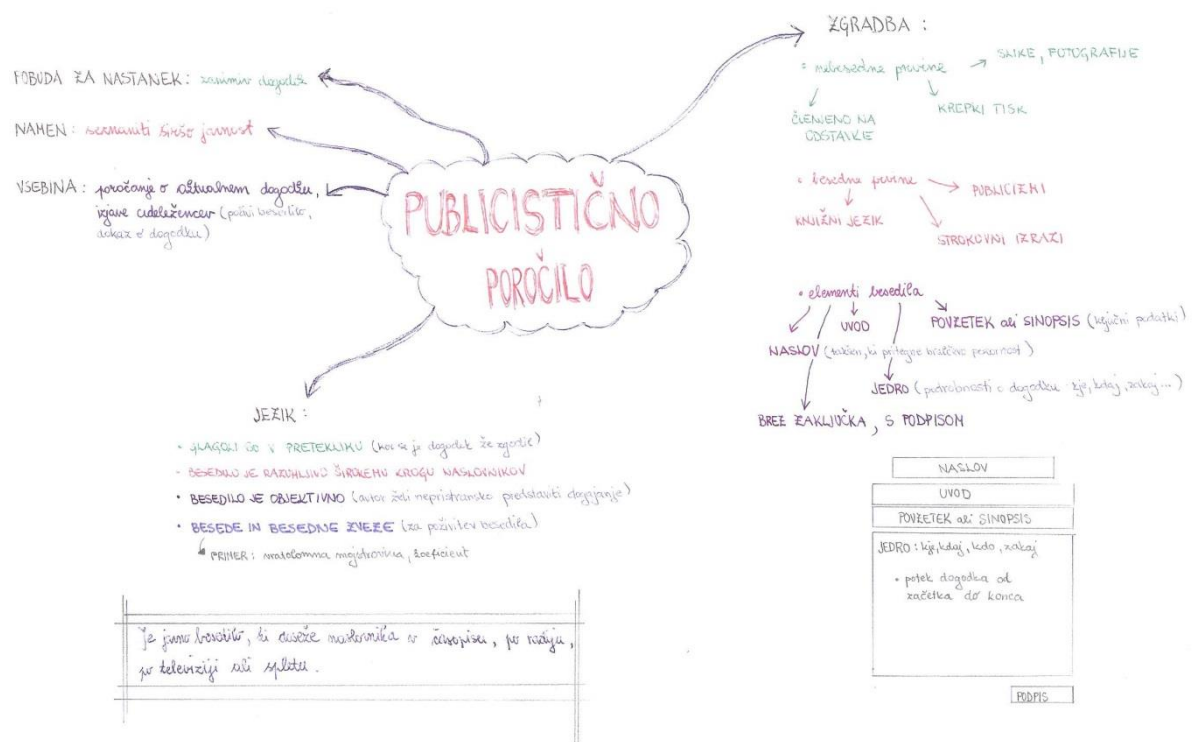 PUBLICISTIČNO
POROČILO
POBUDA ZA NASTANEK: zanimiv dogodek
NAMEN: seznaniti širšo javnost
VSEBINA: poročanje o aktualnem dogodku,
izjave udeležencev (poživi besedilo,
dokaz o dogodku)
ZGRADBA:
• nebesedne prvine
SLIKE, FOTOGRAFIJE
KREPKI TISK
ČLENJENO NA
ODSTAVKE
• besedne prvine
PUBLICIZMI
KNJIŽNI JEZIK
STROKOVNI IZRAZI
• elementi besedila
POVZETEK ali SINOPSIS (ključni podatki)
UVOD
NASLOV (takšen, ki pritegne bralčevo pozornost)
JEDRO (podrobnosti o dogodku - kje, kdaj, zakaj...)
BREZ ZAKLJUČKA, S PODPISOM
JEZIK:
• GLAGOLI SO V PRETEKLIKU (ker se je dogodek že zgodil)
• BESEDILO JE RAZUMLJIVO ŠIROKEMU KROGU NASLOVNIKOV
• BESEDILO JE OBJEKTIVNO (avtor želi nepristransko predstaviti dogajanje)
• BESEDE IN BESEDNE ZVEZE (za poživitev besedila)
PRIMER: matolomna mojstrovina, koeficient
Je javno besedilo, ki doseže naslovnika v časopisu, po radiju,
po televiziji ali spletu.
NASLOV
UVOD
POVZETEK ali SINOPSIS
JEDRO: kje, kdaj, kdo, zakaj
• potek dogodka od
začetka do konca
PODPIS